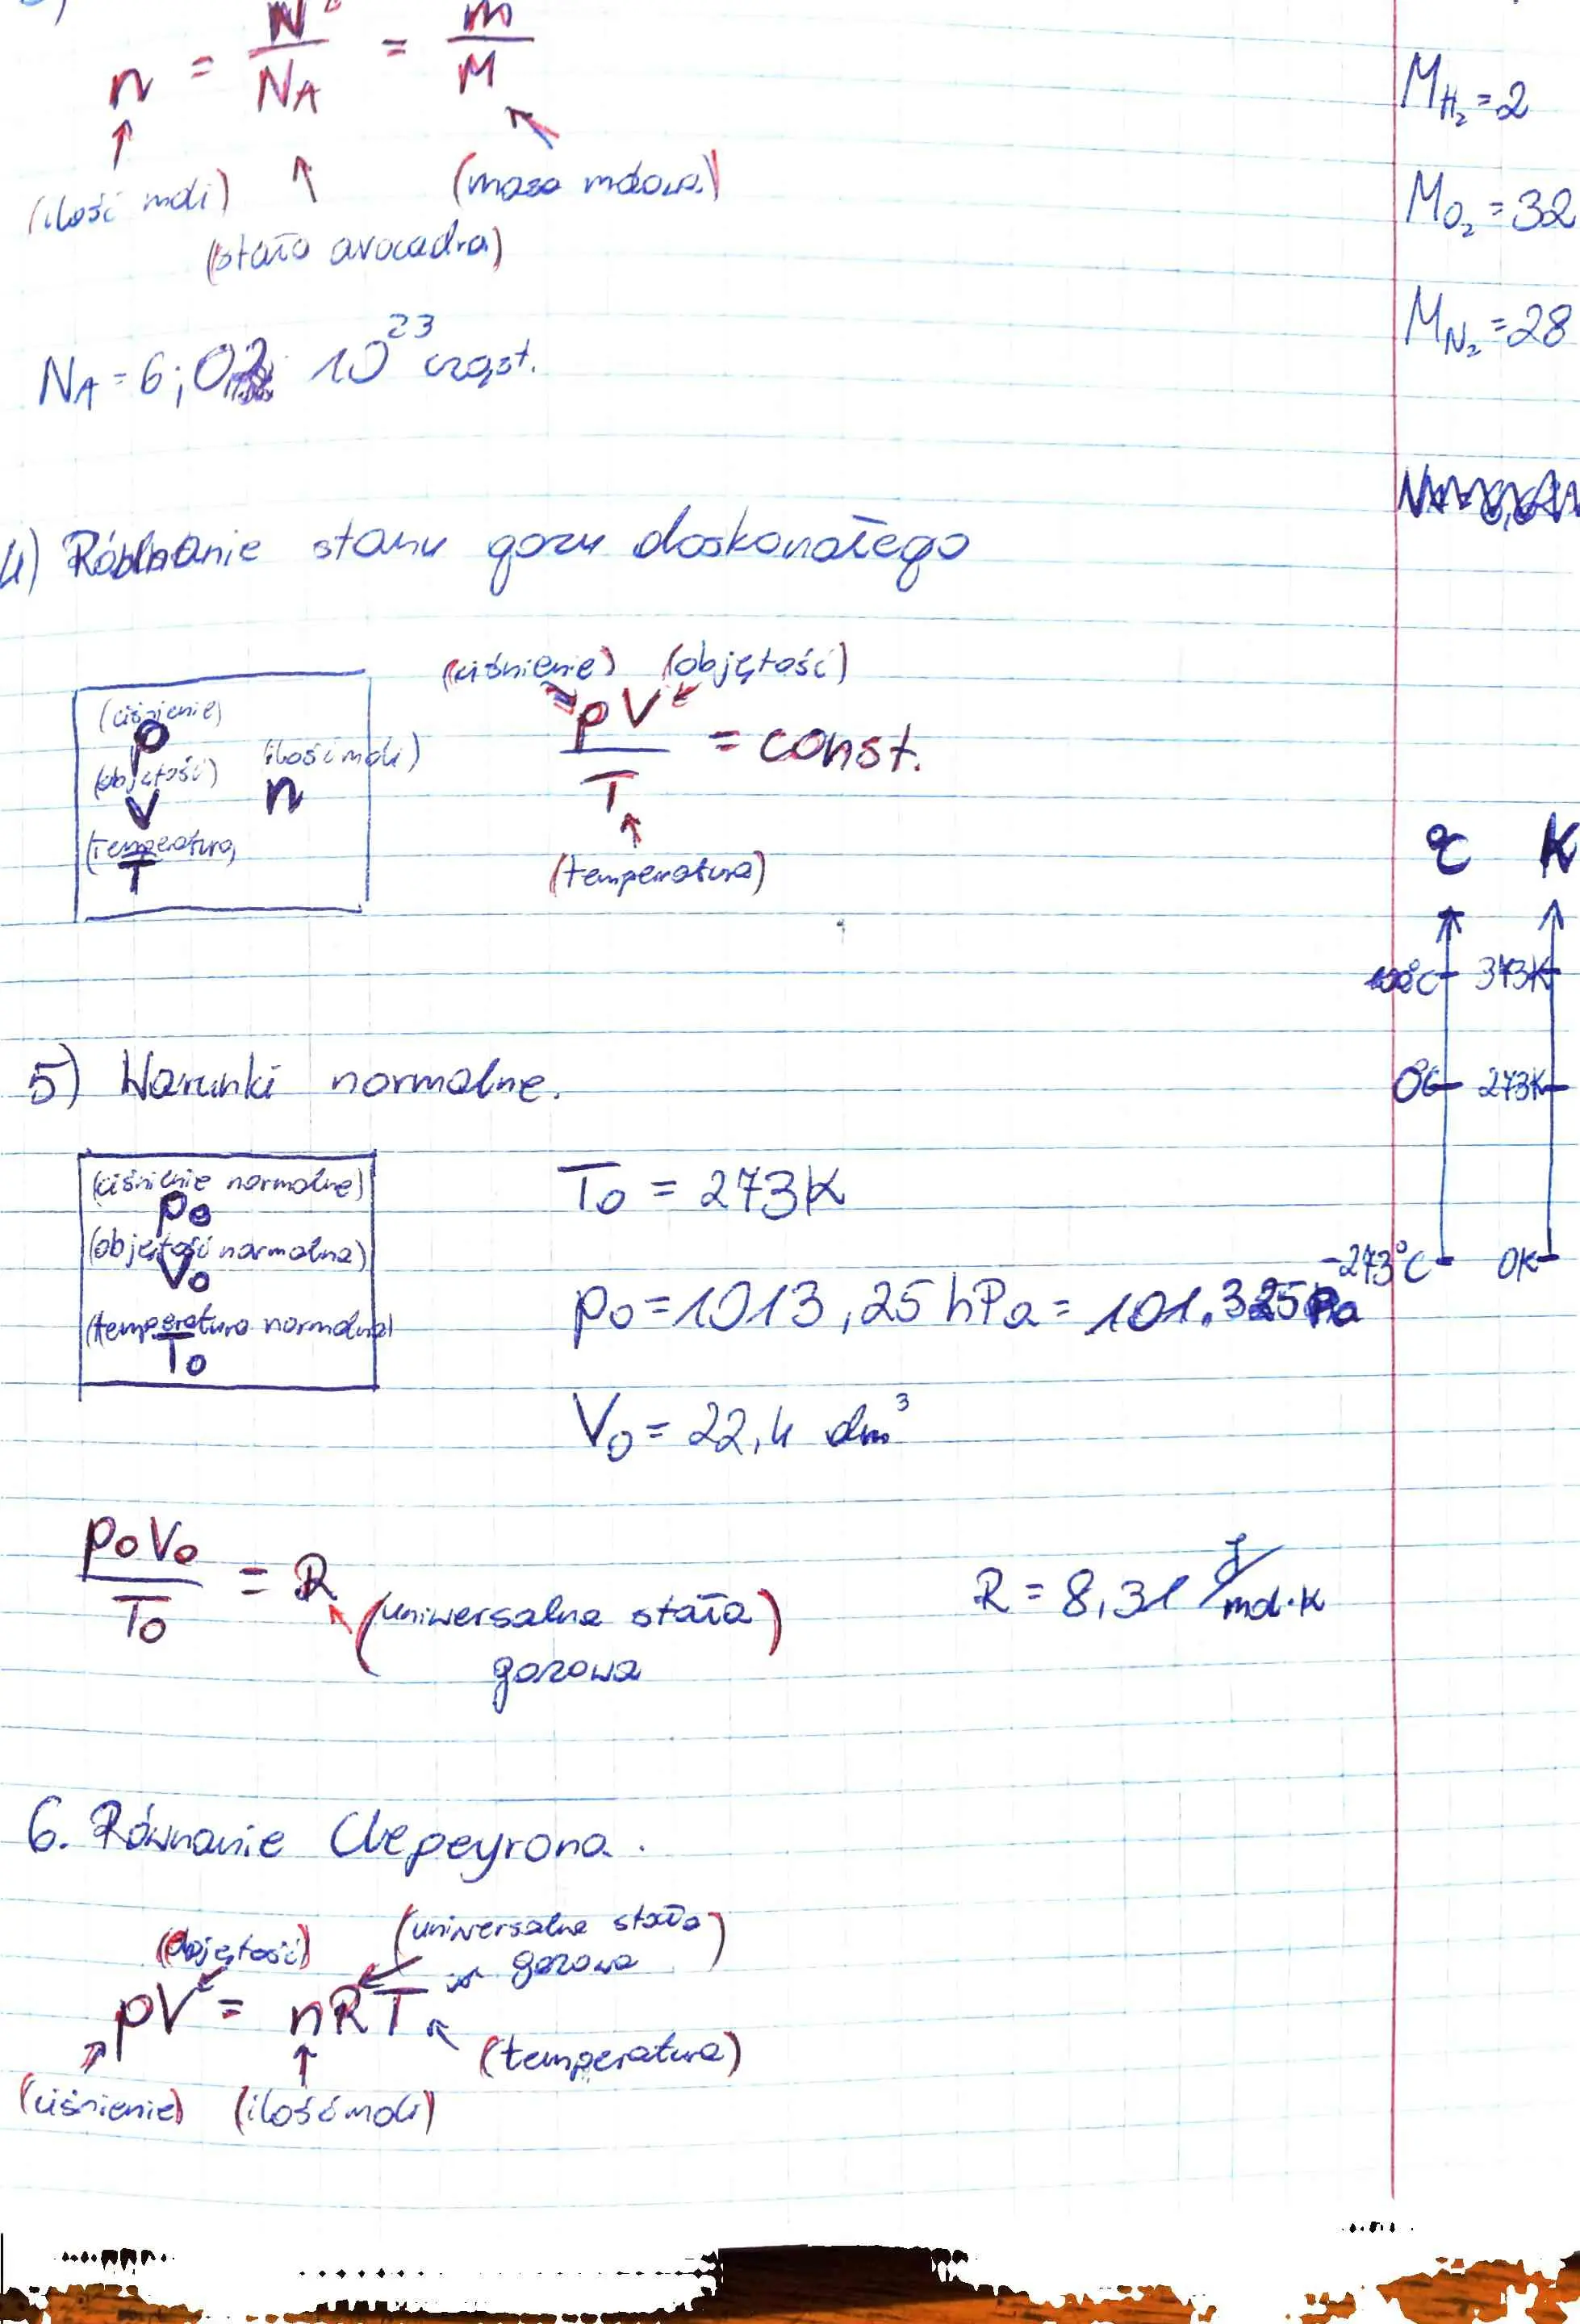 n = N/N_A = m/M
(ilość moli)
(masa molowa)
(stała avocadra)
N_A = 6,02 10^23 cząst.
M_H₂ = 2
M_O₂ = 32
M_N₂ = 28
4) Równanie stanu gazu doskonałego
(ciśnienie)
p
(objętość)
V
(ilość moli)
n
(temperatura)
T
(ciśnienie) (objętość)
pV/T = const.
(temperatura)
°C K
100°C 373K
0°C 273K
-273°C 0K
5) Warunki normalne.
(ciśnienie normalne)
p₀
(objętość normalna)
V₀
(temperatura normalna)
T₀
T₀ = 273K
p₀ = 1013,25 hPa = 101.325 Pa
V₀ = 22,4 dm³
p₀V₀/T₀ = R
(uniwersalna stała gazowa)
R = 8,31 J/mol·K
6. Równanie Clapeyrona.
(objętość)
(uniwersalna stała gazowa)
pV = nRT
(temperatura)
(ciśnienie) (ilość moli)